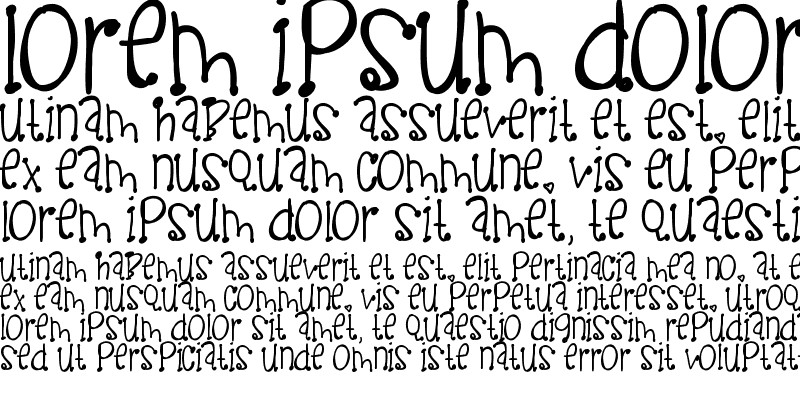 lorem ipsum dolor
utinam habemus assueverit et est. elit
ex eam nusquam commune. vis eu perp
lorem ipsum dolor sit amet, te quaesti
utinam habemus assueverit et est. elit pertinacia mea no. at e
ex eam nusquam commune. vis eu perpetua interesset. utroq
lorem ipsum dolor sit amet, te quaestio dignissim repudiand
sed ut perspiciatis unde omnis iste natus error sit voluptat